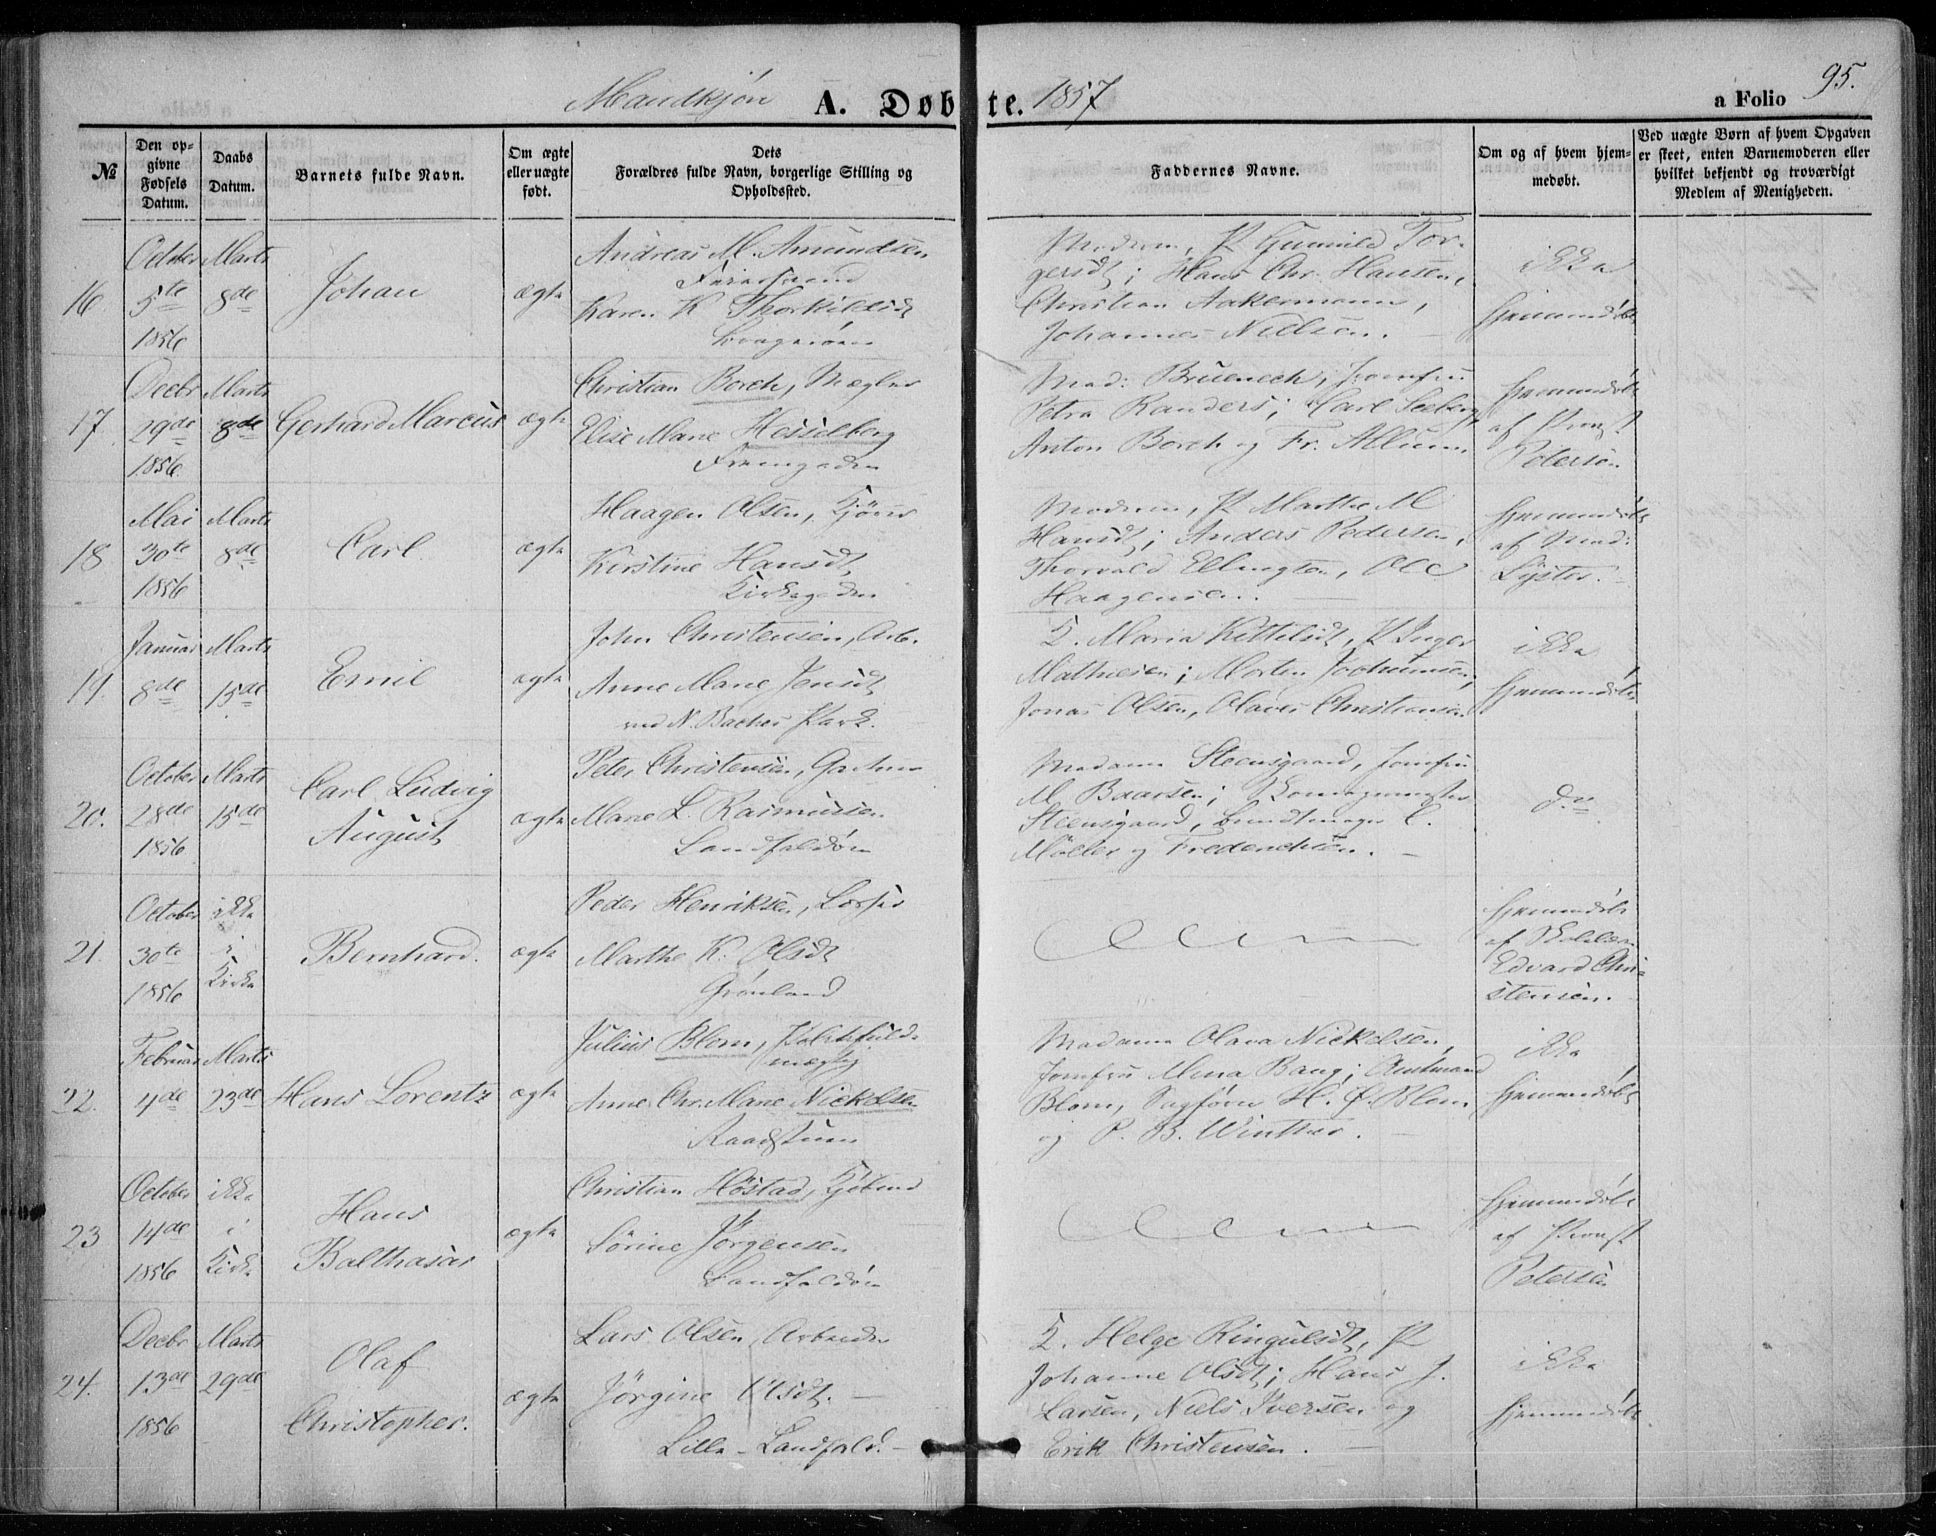 Mandkjön A. Døbte. 1857 a Folio 95.
№
Den opgivne Fødsels Datum.
Daabs Datum.
Barnets fulde Navn.
Om ægte eller uægte født.
Dets Forældres fulde Navn, borgerlige Stilling og Opholdssted.
Faddernes Navne.
Om og af hvem hjemmedøbt.
Ved uægte Børn af hvem Opgaven er skeet, enten Barnemoderen eller hvilket bekjendt og troværdigt Medlem af Menigheden.
16.
October 5te 1856
Marts 8de
Johan
ægte
Andreas M. Amundsen
Karen K Thorkildsdt
Moderen, P Gunild Tor-
gersdt; Hans Chr. Hansen,
Christian Aakermann,
Johannes Nielsen.
ikke
hjemmedöbt
17
Decbr 29de 1856.
Marts 8de
Gerhard Marcus
ægte
Christian Borch, Mægler
Elise Marie Hesselberg
Mad: Bruenech, Jomfru
Petra Randers; Carl Seeberg,
Anton Borch og Fr. Allum.
hjemmedöbt
af Provst
Petersen
18
Mai 30te 1856
Marts 8de
Carl
ægte
Haagen Olsen,
Kirstine Hansdt
Kirkegaden
Moderen, P Marthe M
Hansdt; Anders Pedersen,
Thorvald Ellingsen, Ole
Haagensen.
hjemmedöbt
af Mad:
Lyster.
19.
Januar 8de
Marts 15de
Emil
ægte
John Christensen, Arb.
Anne Marie Jensdt
ved N. Baches Park.
K. Maria Kittelsdt, P Inger
Mathiesen; Morten
Jonas Olsen, Olaves Christiansen
ikke
hjemmedöbt
20.
October 28de 1856
Marts 15de
Carl Ludvig
August
ægte
Peter Christensen, Gartner
Marie L. Rasmussen
Landfaldöen
Madame Steensgaard, Jomfru
M Baarsen; Skomagermester
Steensgaard, Bundtmager C.
Möller og Frederichsen.
do
21.
October 30te 1856
ikke i Kirke
Bernhard.
ægte
Peder Henriksen,
Marthe K. Olsdt
Grönland
hjemmedöbt
af
Edvard Chri-
stensen.
22.
Februar 4de
Marts 23de
Hans Lorentz
ægte
Julius Blom, Politifuld-
mægtig
Anne Chr. Marie Nickelsen
Raadstuen
Madame Olava Nickelsen,
Jomfru Mina Bang; Amtmand
Blom, Sagförer H. C. Blom
og P. B. Winther.
ikke
hjemmedöbt
23
October 14de 1856
ikke i Kirke
Hans
Balthasar
ægte
Christian Höstad,
Sörine Jörgensen
Landfaldöen
hjemmedöbt
af Provst
Petersen
24.
Decbr 13de 1856
Marts 29de
Olaf
Christopher.
ægte
Lars Olsen, Arbeider
Jörgine Olsdt. —
Lille-Landfald. —
K. Helge Ringulsdt, P
Johanne Olsdt; Hans J.
Larsen, Niels Iversen og
Erik Christensen. —
ikke
hjemmedöbt